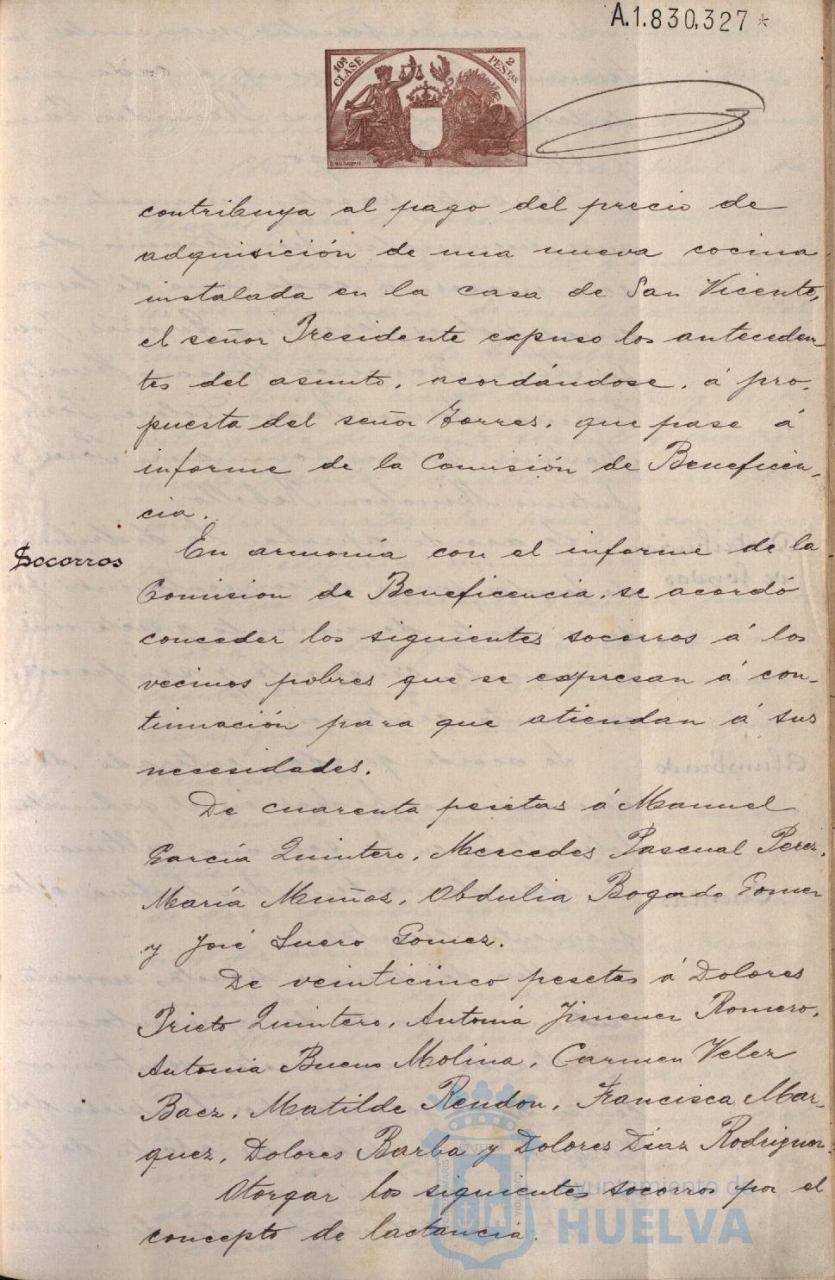 A.1.830,327 *
10ª CLASE
2 PESTAS
contribuya al pago del precio de
adquisición de una nueva cocina
instalada en la casa de San Vicente,
el señor Presidente expuso los anteceden-
tes del asunto, acordándose, á pro-
puesta del señor Torres, que pase á
informe de la Comisión de Beneficen-
cia.
Socorros
En armonía con el informe de la
Comision de Beneficencia, se acordó
conceder los siguientes socorros á los
vecinos pobres que se expresan á con-
tinuación para que atiendan á sus
necesidades.
De cuarenta pesetas á Manuel
García Quintero, Mercedes Pascual Perez,
María Muñoz, Obdulia Bogado Gomez
y José Suero Gomez.
De veinticinco pesetas á Dolores
Prieto Quintero, Antonia Jimenez Romero,
Antonia Bueno Molina, Carmen Velez
Baez, Matilde Rendon, Francisca Mar-
quez, Dolores Barba y Dolores Diaz Rodriguez.
Otorgar los siguientes socorros por el
concepto de lactancia.
Ayuntamiento de
HUELVA